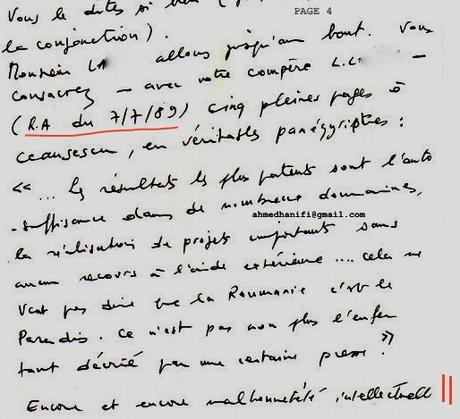 Vous le dites si bien (
PAGE 4
la conjonction).
Monsieur LA allons jusqu'au bout. Vous
consacrez – avec votre compère L.L –
(R.A du 7/7/89) cinq pleines pages à
Ceausescu, en véritables panégyristes :
« ... Les résultats les plus patents sont l'auto
-suffisance dans de nombreux domaines,
ahmedhanifi@gmail.com
la réalisation de projets importants sans
aucun recours à l'aide extérieure .... cela ne
veut pas dire que la Roumanie c'est le
Paradis. Ce n'est pas non plus l'enfer
tant décrié par une certaine presse. »
Encore et encore malhonnêteté intellectuelle